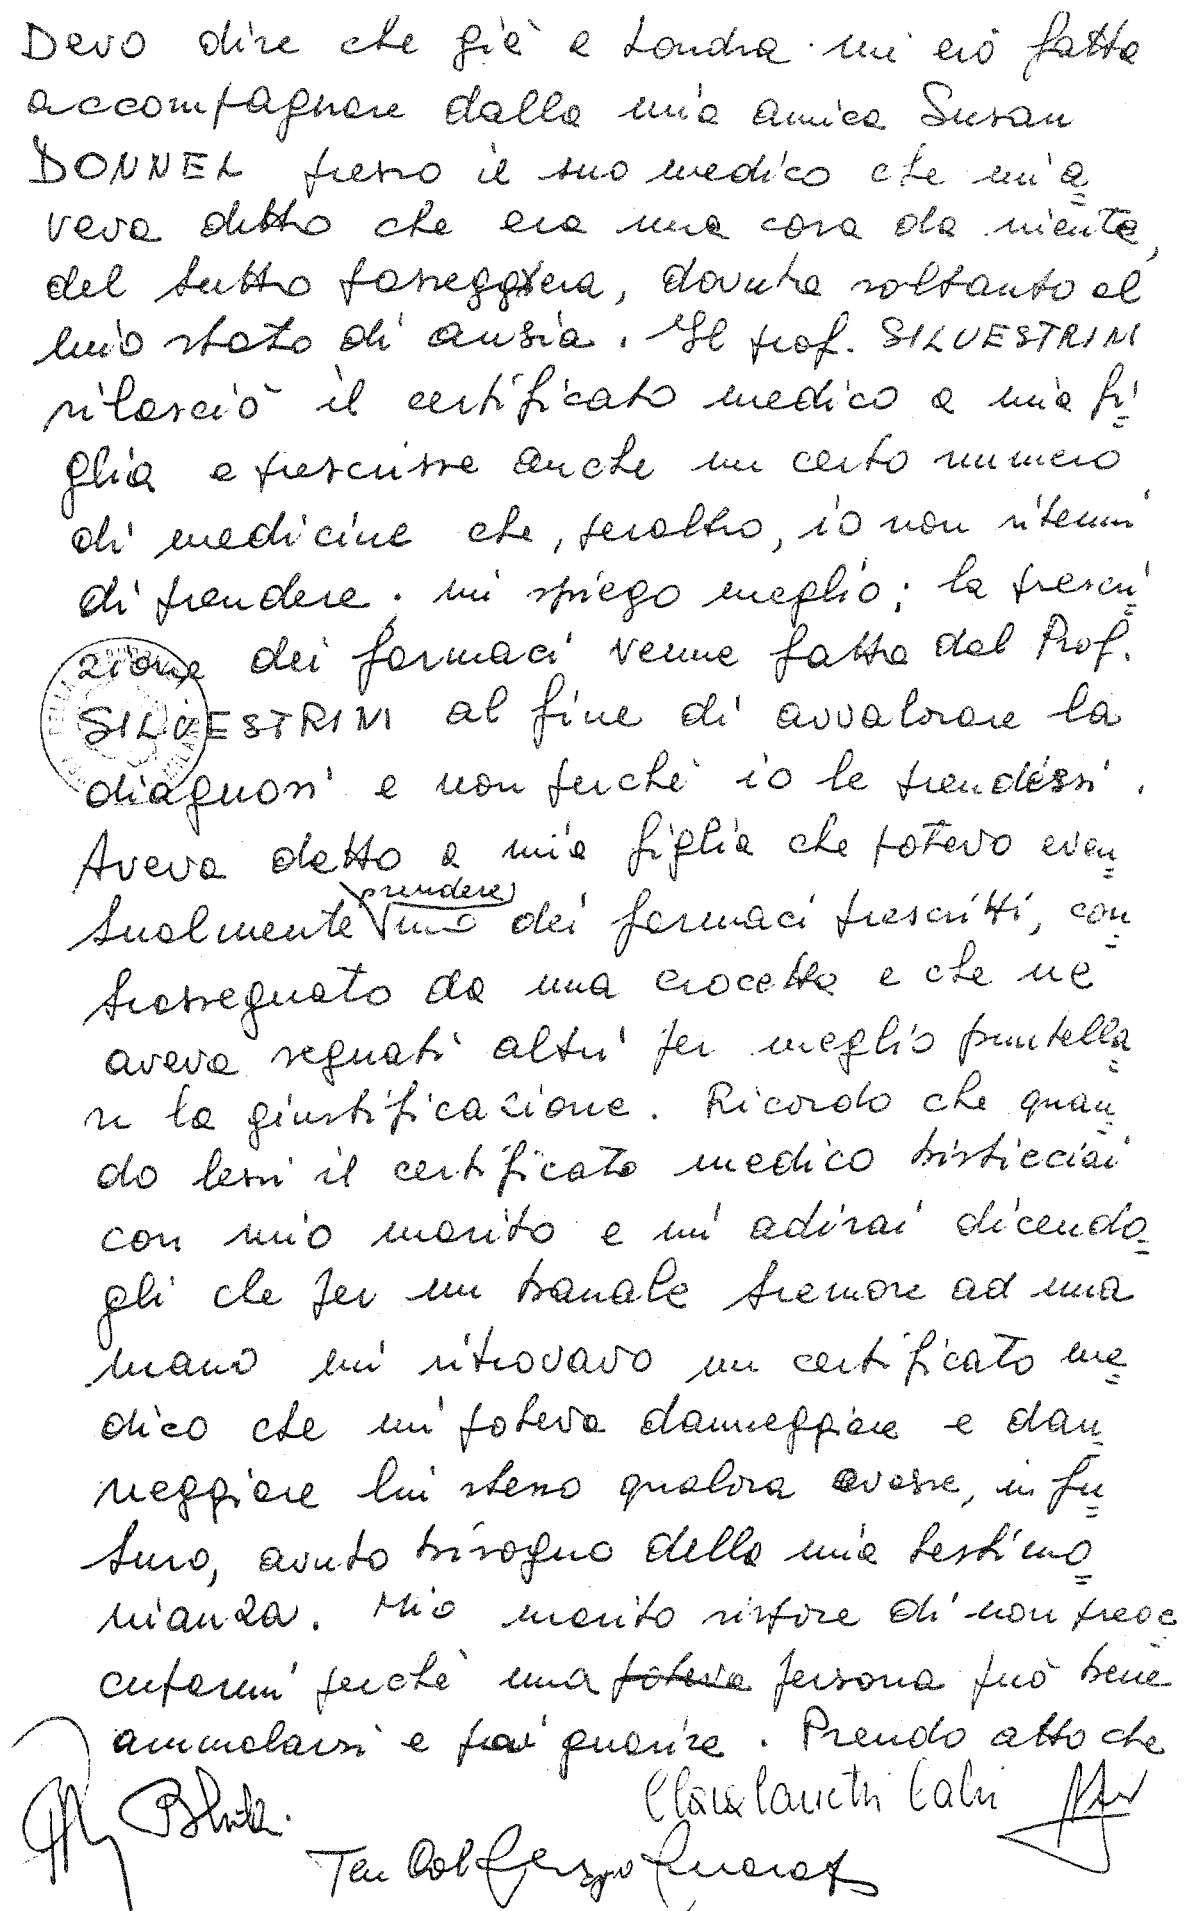 Devo dire che già a Londra mi ero fatta
accompagnare dalla mia amica Susan
DONNEL presso il suo medico che mi a=
veva detto che era una cosa da niente,
del tutto passeggera, dovuta soltanto al
mio stato di ansia. Il prof. SILVESTRINI
rilasciò il certificato medico a mia fi=
glia e prescrisse anche un certo numero
di medicine che, peraltro, io non ritenni
di prendere. mi spiego meglio; la prescri=
zione dei farmaci venne fatta dal Prof.
SILVESTRINI al fine di avvalorare la
diagnosi e non perchè io le prendessi.
Aveva detto a mia figlia che potevo even=
prendere
tualmente uno dei farmaci prescritti, con=
trassegnato da una crocetta e che ne
aveva segnati altri per meglio puntella=
re la giustificazione. Ricordo che quan=
do lessi il certificato medico bisticciai
con mio marito e mi adirai dicendo=
gli che per un banale tremore ad una
mano mi ritrovavo un certificato me=
dico che mi poteva danneggiare e dan=
neggiare lui stesso qualora avesse, in fu=
turo, avuto bisogno della mia testimo=
nianza. Mio marito rispose di non preoc=
cuparmi perchè una poteva persona può bene
ammalarsi e poi guarire. Prendo atto che
Clara Canetti Calvi
Ten Col